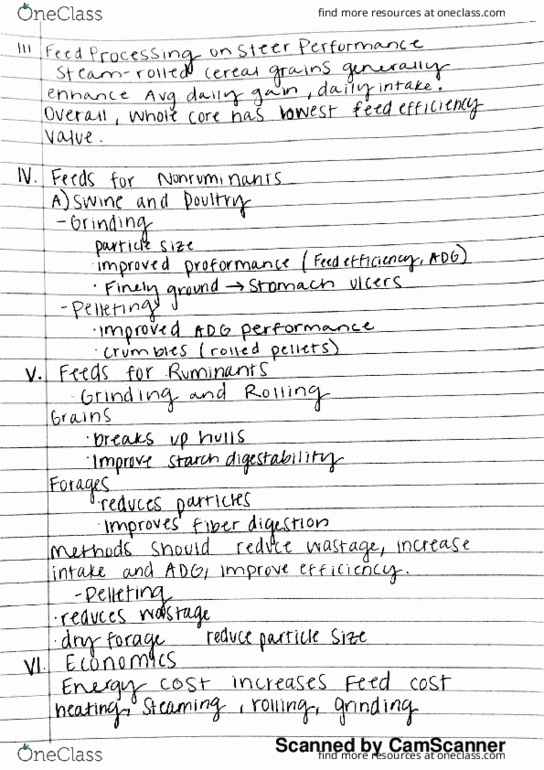 OneClass
find more resources at oneclass.com
III Feed Processing on Steer Performance
Steam-rolled cereal grains generally
enhance Avg daily gain, daily intake.
Overall, whole core has lowest feed efficiency
value.
IV. Feeds for Nonruminants
A) Swine and Poultry
- Grinding
particle size
· improved proformance (Feed efficiency, ADG)
· Finely ground → Stomach ulcers
- Pelleting
· improved ADG performance
· crumbles (rolled pellets)
V. Feeds for Ruminants
- Grinding and Rolling
Grains
· breaks up hulls
· Improve starch digestability
Forages
· reduces particles
· improves fiber digestion
Methods should reduce wastage, increase
intake and ADG, improve efficiency.
- Pelleting
· reduces wastage
· dry forage reduce particle size
VI. Economics
Energy cost increases Feed cost
heating, steaming, rolling, grinding
Scanned by CamScanner
OneClass
find more resources at oneclass.com